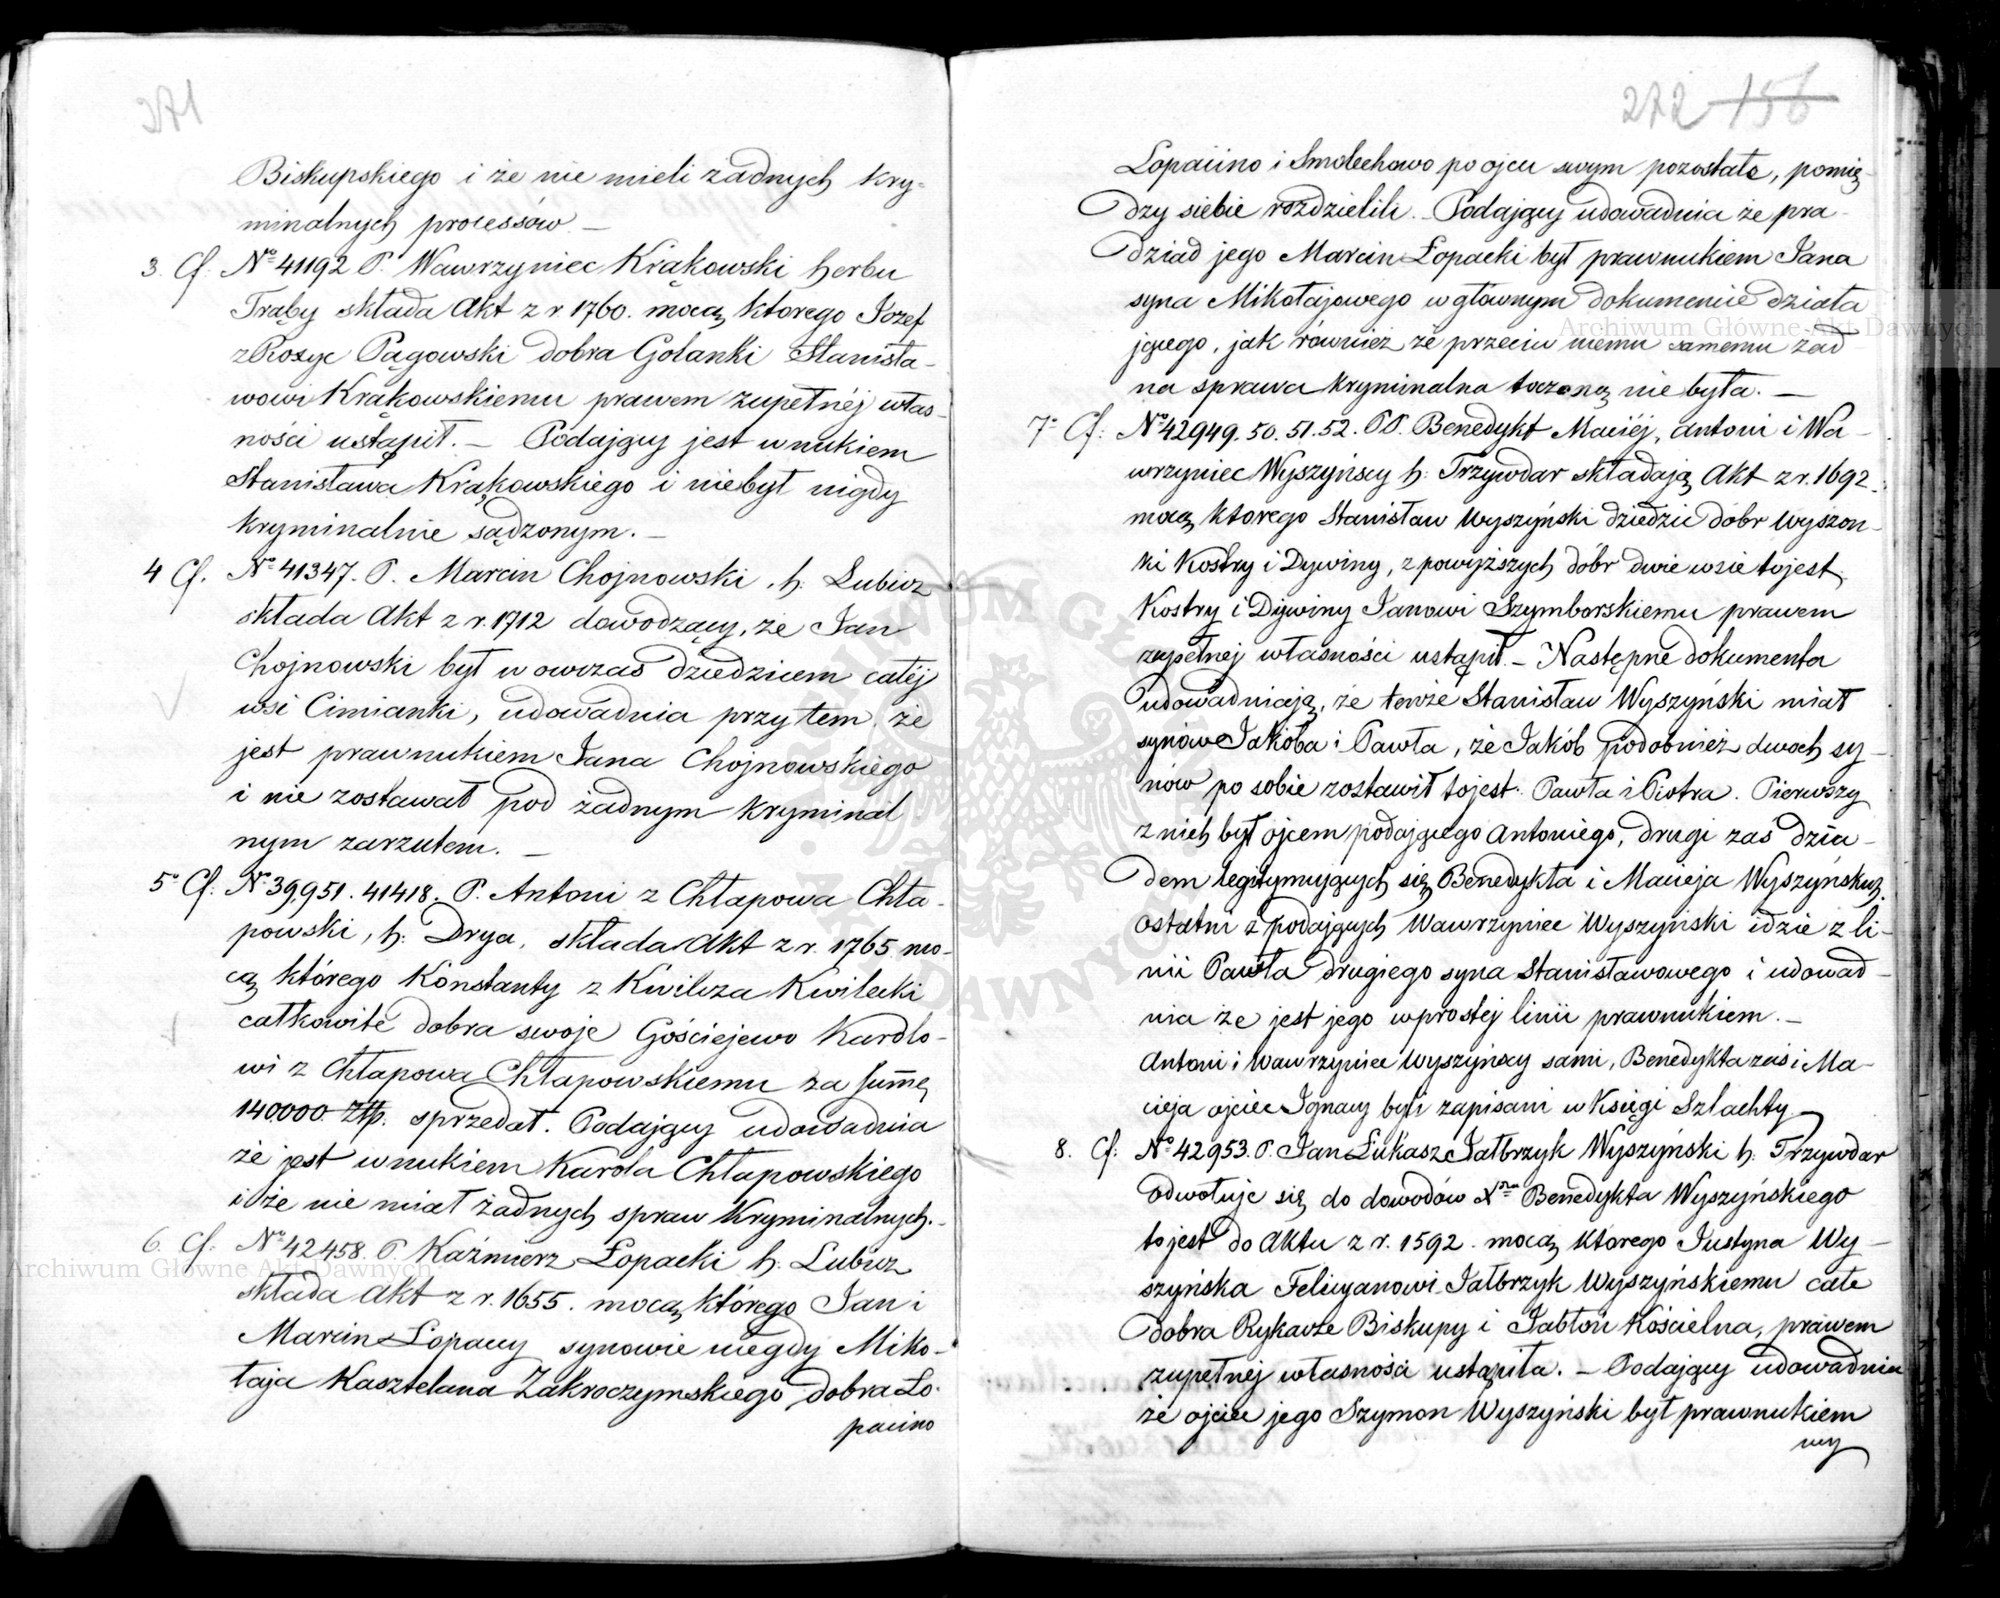 271
Biskupskiego i że nie mieli żadnych kry-
minalnych processów. —
3. Cf. No 41192 P. Wawrzyniec Krąkowski herbu
Trąby składa Akt z r 1760. mocą ktorego Jozef
z Rozyc Pągowski dobra Golanki Stanisła-
wowi Krąkowskiemu prawem zupełnéj włas-
ności ustąpił. — Podający jest wnukiem
Stanisława Krąkowskiego i niebył nigdy
kryminalnie sądzonym. —
4 Cf. No 41347. P. Marcin Chojnowski, h. Lubicz
składa Akt z r. 1712 dowodzący, że Jan
Chojnowski był w owczas dziedzicem całéj
wsi Cimianki, udowadnia przytem, że
jest prawnukiem Jana Chojnowskiego
i nie zostawał pod żadnym kryminal
nym zarzutem. —
5o Cf: No 39,951. 41418. P. Antoni z Chłapowa Chła-
powski, h: Drya, składa Akt z r. 1765 mo-
cą którego Konstanty z Kwilcza Kwilecki
całkowite dobra swoje Gościejewo Karolo-
wi z Chłapowa Chłapowskiemu za sum̄ę
140000 Złp. sprzedał. Podający udowadnia
że jest wnukiem Karola Chłapowskiego
i że nie miał żadnych spraw kryminalnych. —
6. Cf: No 42458. P. Kaźmierz Łopacki h. Lubicz
składa Akt z r. 1655. mocą którego Jan i
Marcin Łopaccy synowie niegdy Miko-
łaja Kasztelana Zakroczymskiego dobra Ło-
pacino
272 156
Łopacino i Smolechowo po ojcu swym pozostałe, pomię-
dzy siebie rozdzielili. — Podający udowadnia że pra-
dziad jego Marcin Łopacki był prawnukiem Jana
syna Mikołajowego w głównym dokumencie działa
jącego, jak również że przeciw niemu samemu żad-
na sprawa kryminalna toczoną nie była. —
7o Cf: No 42949. 50. 51. 52. PP. Benedykt Maciéj, Antoni i Wa-
wrzyniec Wyszyńscy h: Trzywdar składają Akt z r. 1692.
mocą ktorego Stanisław Wyszyński dziedzic dobr Wyszon-
ki Kostry i Dywiny, z powyższych dóbr dwie wsie tojest
Kostry i Dywiny Janowi Szymborskiemu prawem
zupełnej własności ustąpił. — Następne dokumenta
udowadniają, że tenże Stanisław Wyszyński miał
synów Jakóba i Pawła, że Jakób podobnież dwoch sy-
nów po sobie zostawił tojest: Pawła i Piotra. Pierwszy
z nich był ojcem podającego Antoniego, drugi zaś dzia-
dem legitymujących się Benedykta i Macieja Wyszyńskich
Ostatni z podających Wawrzyniec Wyszyński idzie z li-
nii Pawła drugiego syna Stanisławowego i udowad-
nia że jest jego w prostej linii prawnukiem. —
Antoni i Wawrzyniec Wyszyńscy sami, Benedykta zaś i Ma-
cieja ojciec Ignacy byli zapisani w Księgi Szlachty
8. Cf: No 42953. P. Jan Łukasz Jałbrzyk Wyszyński h. Trzywdar
Odwołuje się do dowodów Xdza Benedykta Wyszyńskiego
tojest do Aktu z r. 1592. mocą ktorego Justyna Wy-
szyńska Felicyanowi Jałbrzyk Wyszyńskiemu całe
dobra Rykacze Biskupy i Jabłoń Kościelna, prawem
zupełnej własności ustąpiła. — Podający udowadnia
że ojciec jego Szymon Wyszyński był prawnukiem
wy
Archiwum Główne Akt Dawnych
Archiwum Główne Akt Dawnych